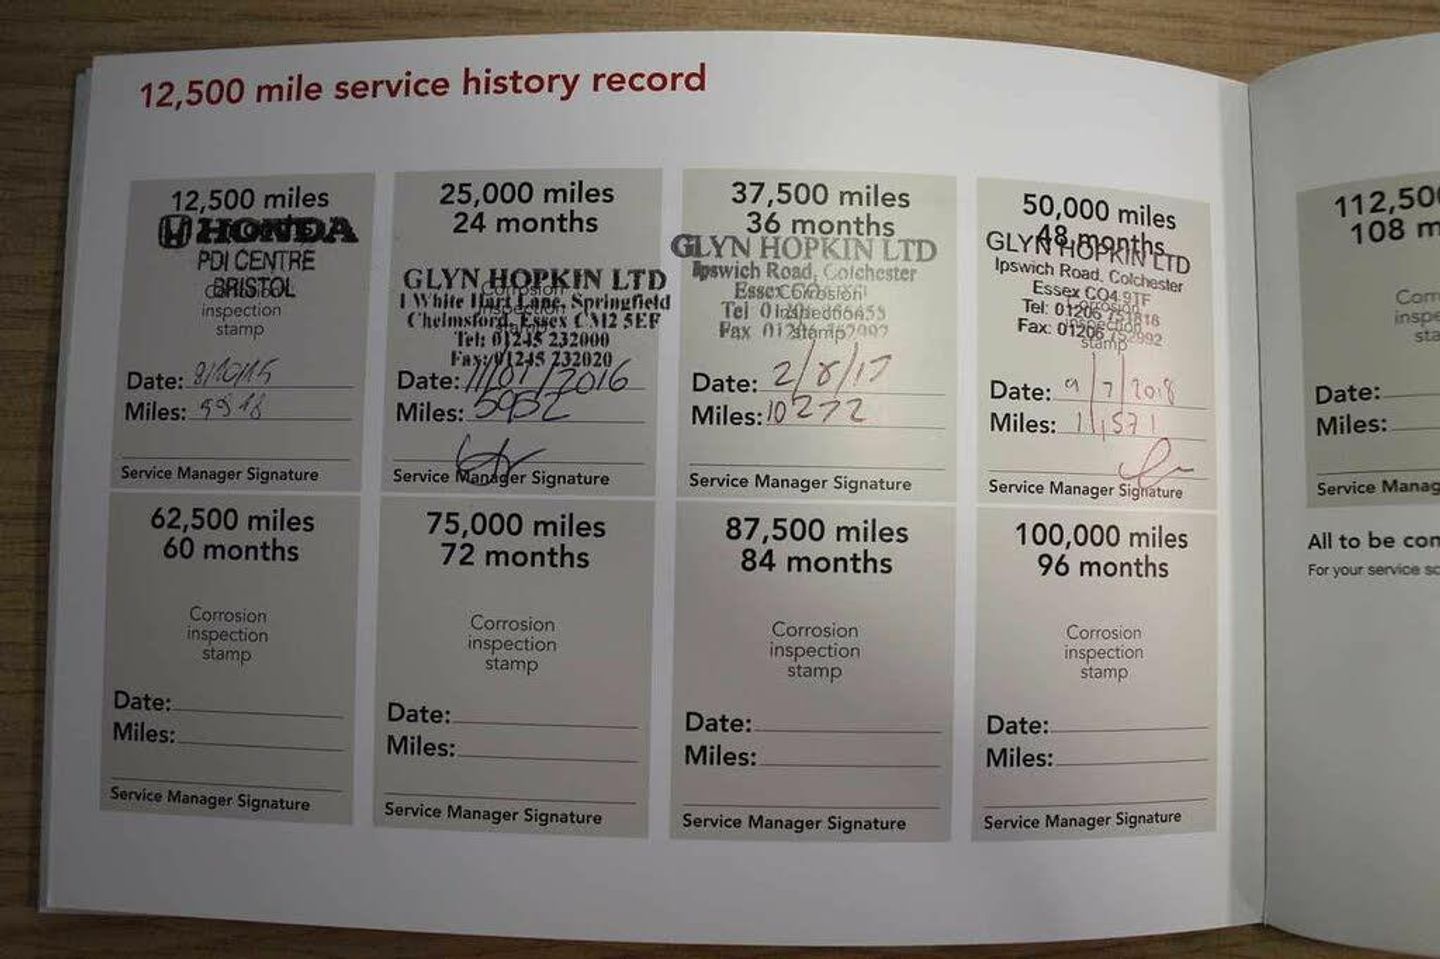 12,500 mile service history record
12,500 miles
HONDA
PDI CENTRE
BRISTOL
inspection
stamp
Date: 8/10/15
Miles: 5918
Service Manager Signature
25,000 miles
24 months
GLYN HOPKIN LTD
1 White Hart Lane, Springfield
Chelmsford, Essex CM2 5EF
Tel: 01245 232000
Fax: 01245 232020
Date: 11/01/2016
Miles: 5952
Service Manager Signature
37,500 miles
36 months
GLYN HOPKIN LTD
Ipswich Road, Colchester
Essex
Tel
Fax
stamp
Date: 2/8/17
Miles: 10272
Service Manager Signature
50,000 miles
48 months
GLYN HOPKIN LTD
Ipswich Road, Colchester
Essex CO4 9TF
Tel: 01206
Fax: 01206
stamp
Date: 9/7/2018
Miles: 11,571
Service Manager Signature
62,500 miles
60 months
Corrosion
inspection
stamp
Date:
Miles:
Service Manager Signature
75,000 miles
72 months
Corrosion
inspection
stamp
Date:
Miles:
Service Manager Signature
87,500 miles
84 months
Corrosion
inspection
stamp
Date:
Miles:
Service Manager Signature
100,000 miles
96 months
Corrosion
inspection
stamp
Date:
Miles:
Service Manager Signature
112,50
108 m
Corr
inspe
sta
Date:
Miles:
Service Manag
All to be con
For your service sc